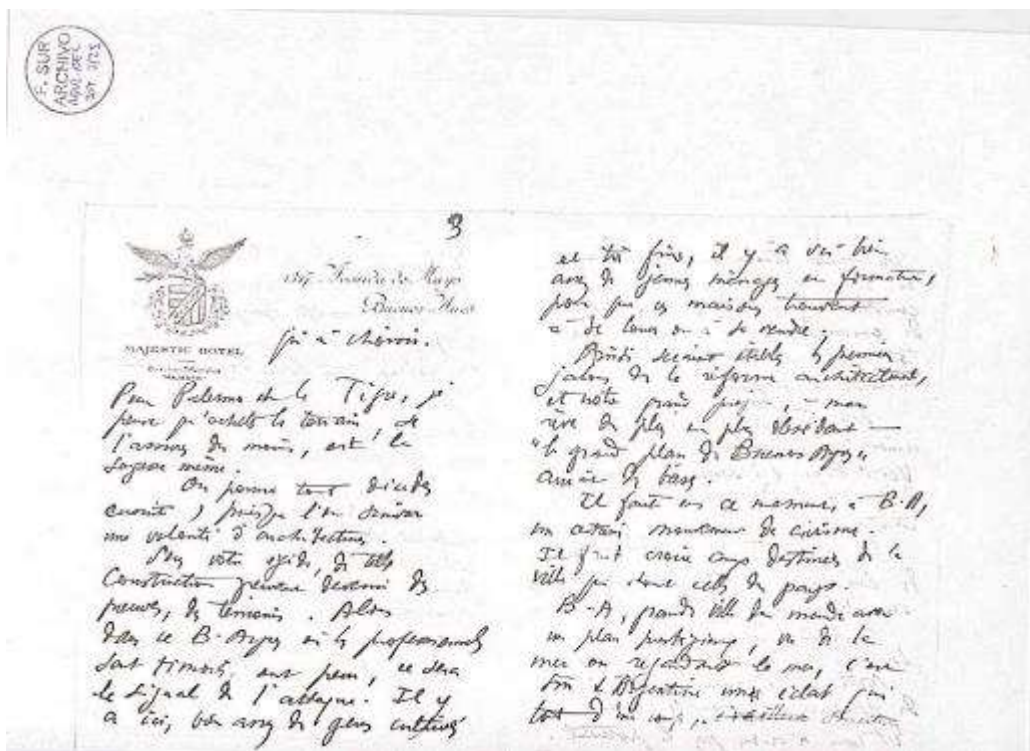 F. SUR
ARCHIVO
3
Buenos Aires
MAJESTIC HOTEL
qui à choisir.
Pour Palermo et le Tigre, je
pense qu'acheter le terrain, de
l'amener du moins, est la
sagesse même.
On pourra tout décider
ensuite, puisque l'on
une volonté d'architecture.
Sous votre égide, de telles
Constructions peuvent devenir des
preuves, des témoins. Alors
dans ce B-Ayres où les professionnels
sont timorés, ont peur, ce sera
le signal de l'attaque. Il y
a ici, bien assez de gens cultivés
et très fins, il y a ici bien
assez de jeunes ménages en formation,
pour que ces maisons trouvent
à se louer ou à se vendre.
Ainsi seraient établis les premiers
jalons de la réforme architecturale,
et notre grand projet, - mon
rêve de plus en plus obsédant -
"le grand plan de Buenos Ayres"
de base.
Il faut en ce moment, à B-A,
un certain mouvement de civisme.
Il faut croire aux destinées de la
ville qui sont celles du pays.
B-A, grande ville du monde avec
un plan prestigieux, vu de la
mer en regardant la mer, c'est
l'Argentine éclat
tout d'un coup,